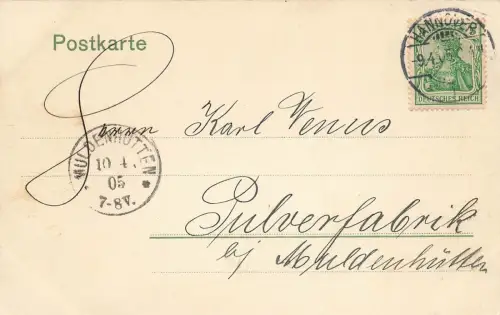 Postkarte
HANNOVER
DEUTSCHES REICH
Herrn Karl Venus
MULDENHÜTTEN
10 4.
05
7-8V.
Pulverfabrik
bj Muldenhütten